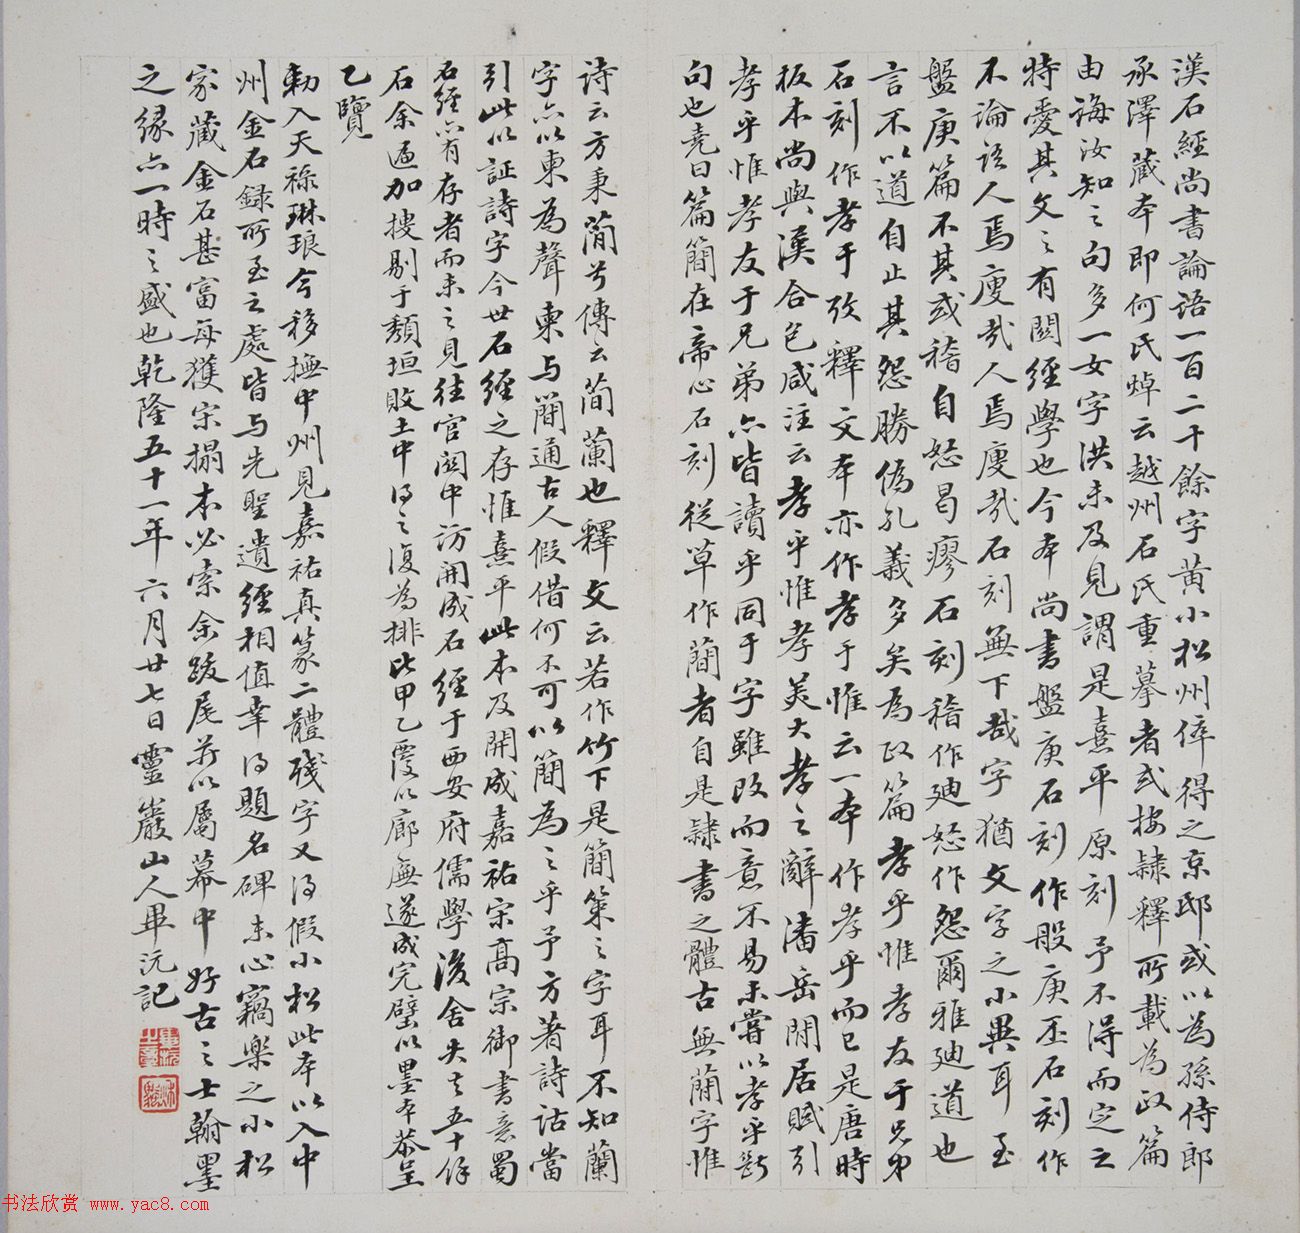 漢石經尚書論語一百二十餘字黃小松州倅得之京邸或以為孫侍郎
承澤藏本即何氏焯云越州石氏重摹者或按隸釋所載為政篇
由誨汝知之句多一女字洪未及見謂是熹平原刻予不得而定之
特愛其文之有關經學也今本尚書盤庚石刻作般庚丕石刻作
不論語人焉廋哉人焉廋哉石刻無下哉字猶文字之小異耳至
盤庚篇不其或稽自怒曷瘳石刻稽作迪怒作怨爾雅迪道也
言不以道自止其怨勝偽孔義多矣為政篇孝乎惟孝友于兄弟
石刻作孝于攷釋文本亦作孝于惟云一本作孝乎而已是唐時
板本尚與漢合包咸注云孝乎惟孝美大孝之辭潘岳閒居賦引
孝乎惟孝友于兄弟亦皆讀乎同于字雖改而意不易未嘗以孝乎斷
句也堯曰篇簡在帝心石刻從草作蕳者自是隸書之體古無蕳字惟
詩云方秉蕳兮傳云蕳蘭也釋文云若作竹下是簡策之字耳不知蘭
字亦以柬為聲柬与簡通古人假借何不可以簡為之乎予方著詩詁當
引此以証詩字今世石經之存惟熹平此本及開成嘉祐宋高宗御書意蜀
石經亦有存者而未之見往官關中訪開成石經于西安府儒學後舍失去五十餘
石余遍加搜剔于頹垣敗土中得之復為排比甲乙覆以廊廡遂成完璧以墨本恭呈
乙覽
勅入天祿琳琅今移撫中州見嘉祐真篆二體殘字又得假小松此本以入中
州金石録所至之處皆与先聖遺經相值幸得題名碑末心竊樂之小松
家藏金石甚富每獲宋搨本必索余跋尾並以屬幕中好古之士翰墨
之緣亦一時之盛也乾隆五十一年六月廿七日靈巖山人畢沅記
书法欣赏 www.yac8.com